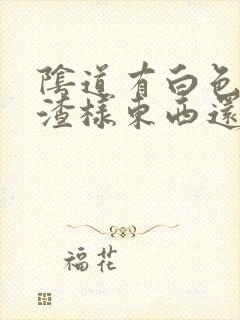 陰道有白色
渣樣東西還
福花